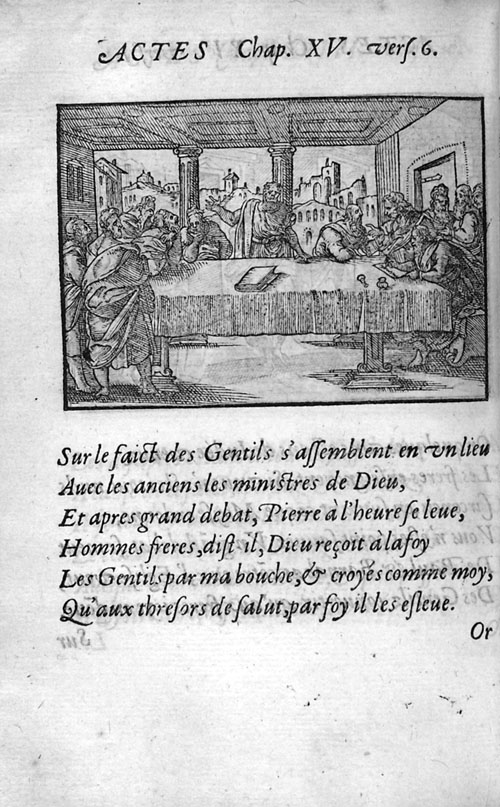 ACTES Chap. XV. vers. 6.
Sur le faict des Gentils s'assemblent en vn lieu
Auec les anciens les ministres de Dieu,
Et apres grand debat, Pierre à l'heure se leue,
Hommes freres, dist-il, Dieu reçoit à la foy
Les Gentils par ma bouche, & croyés comme moy,
Qu'aux thresors de salut, par foy il les esleue.
Or